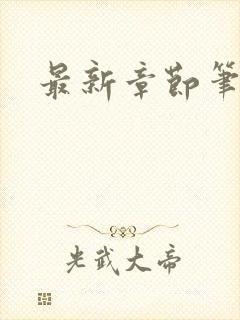 最新章節筆
光武大帝